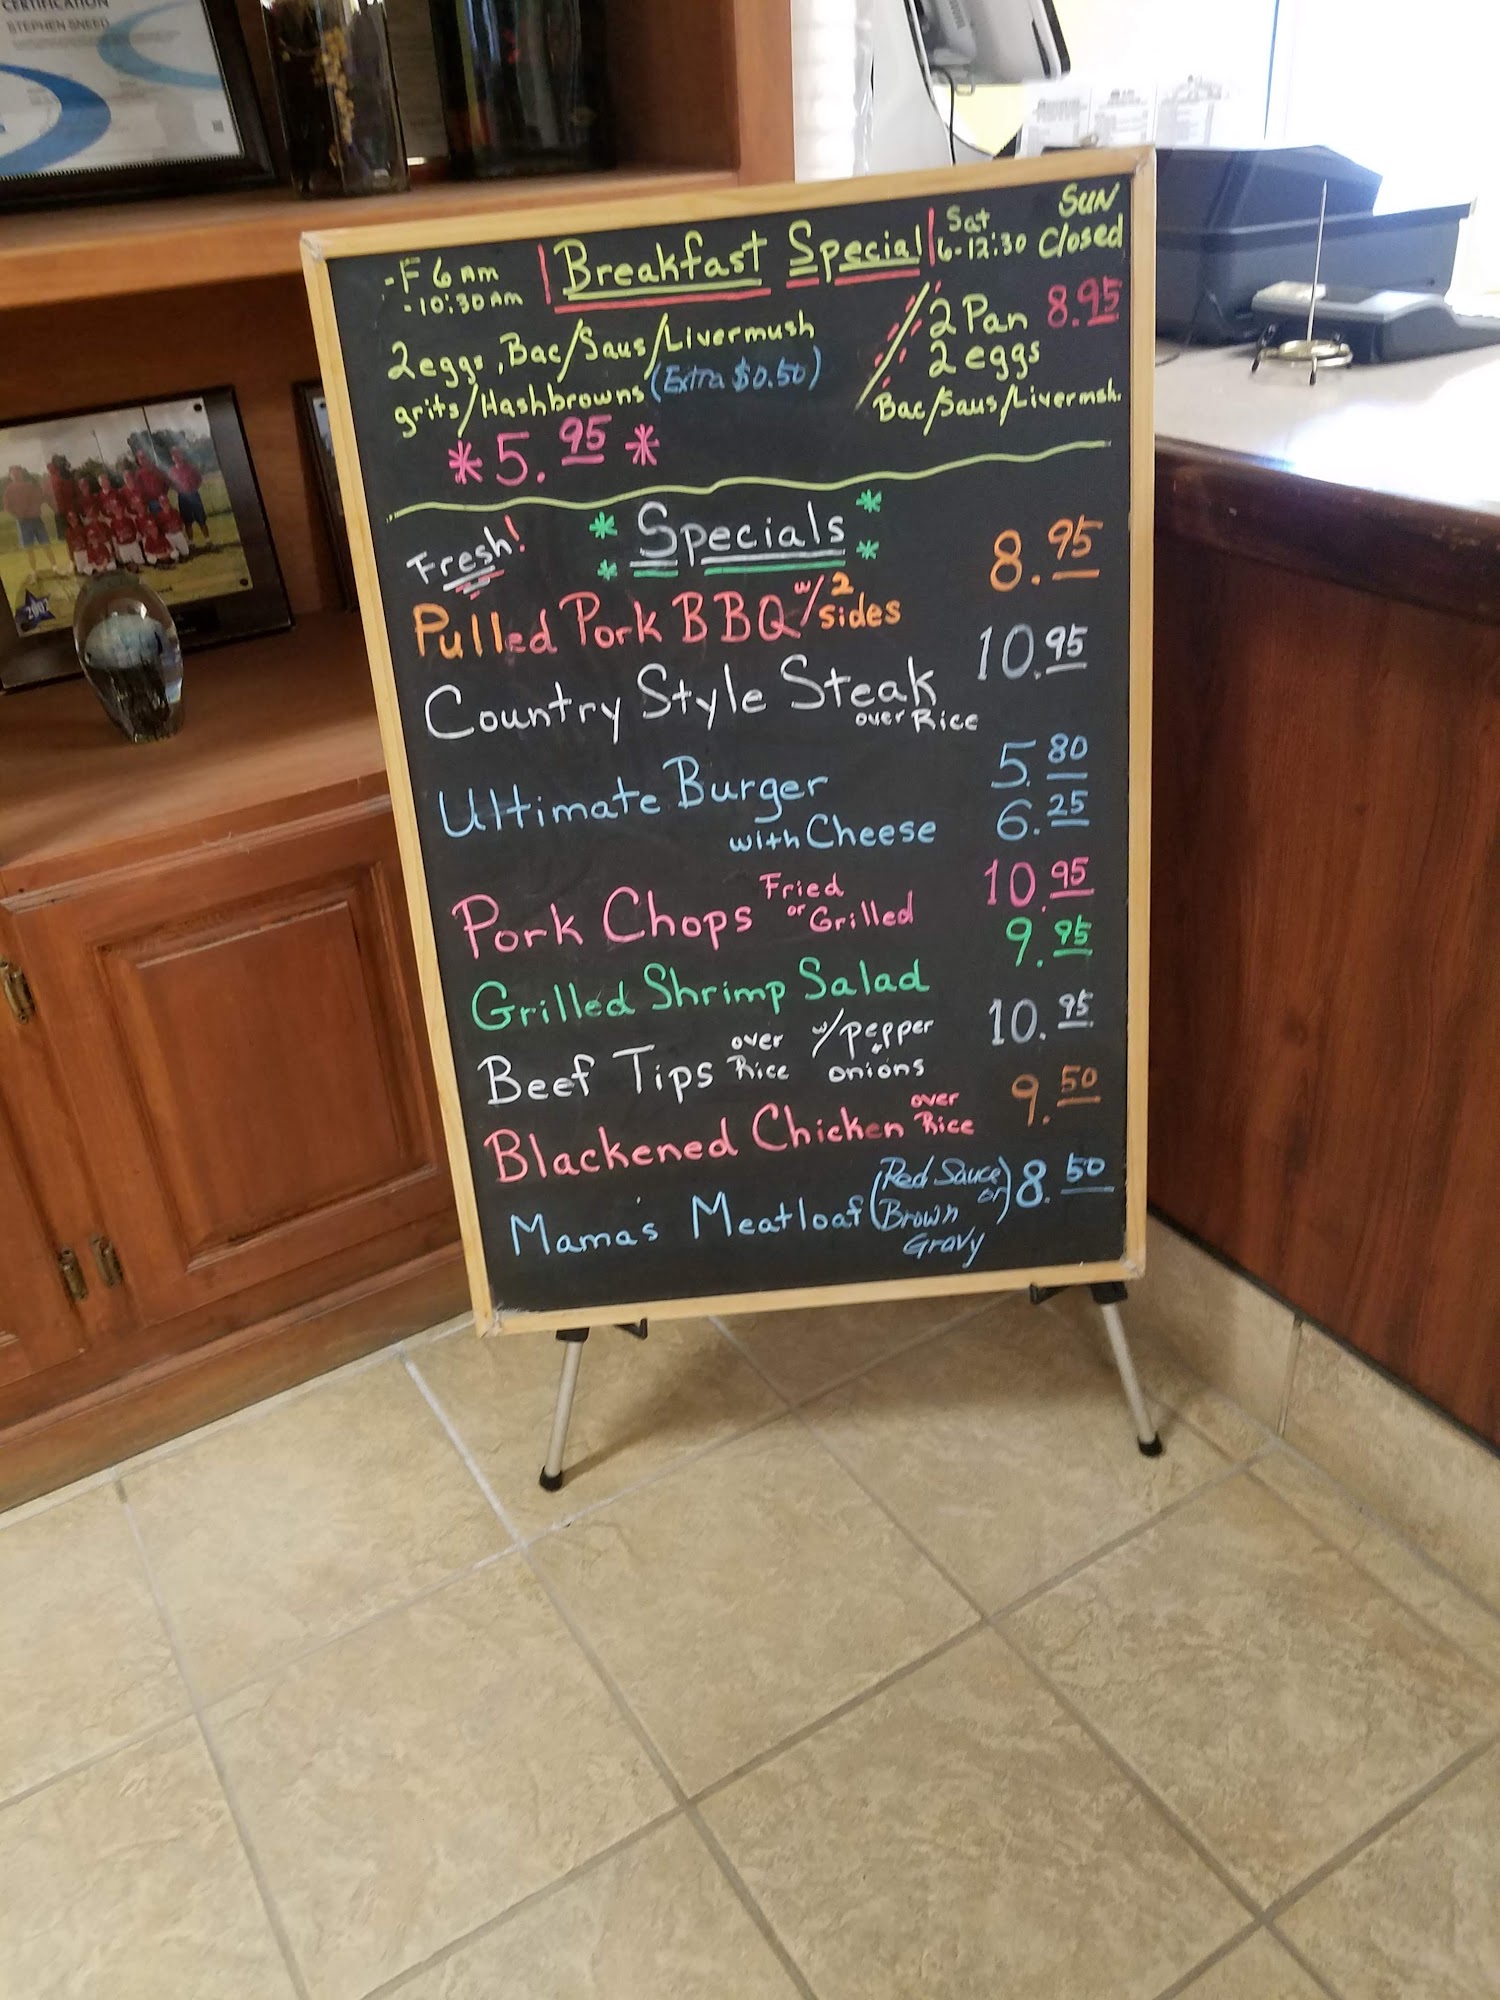 CERTIFICATION
STEPHEN SNEED
-F 6 AM
-10:30 AM
Breakfast Special
Sat
6-12:30
SUN
Closed
2 eggs, Bac/Saus/Livermush
grits/Hashbrowns (Extra $0.50)
*5.95*
2 Pan 8.95
2 eggs
Bac/Saus/Livermsh.
Fresh!
* Specials *
Pulled Pork BBQ w/2 sides 8.95
Country Style Steak 10.95
over Rice
Ultimate Burger 5.80
with Cheese 6.25
Pork Chops Fried or Grilled 10.95
Grilled Shrimp Salad 9.95
Beef Tips over Rice w/pepper onions 10.95
Blackened Chicken over Rice 9.50
Mama's Meatloaf (Red Sauce or Brown Gravy) 8.50
2007